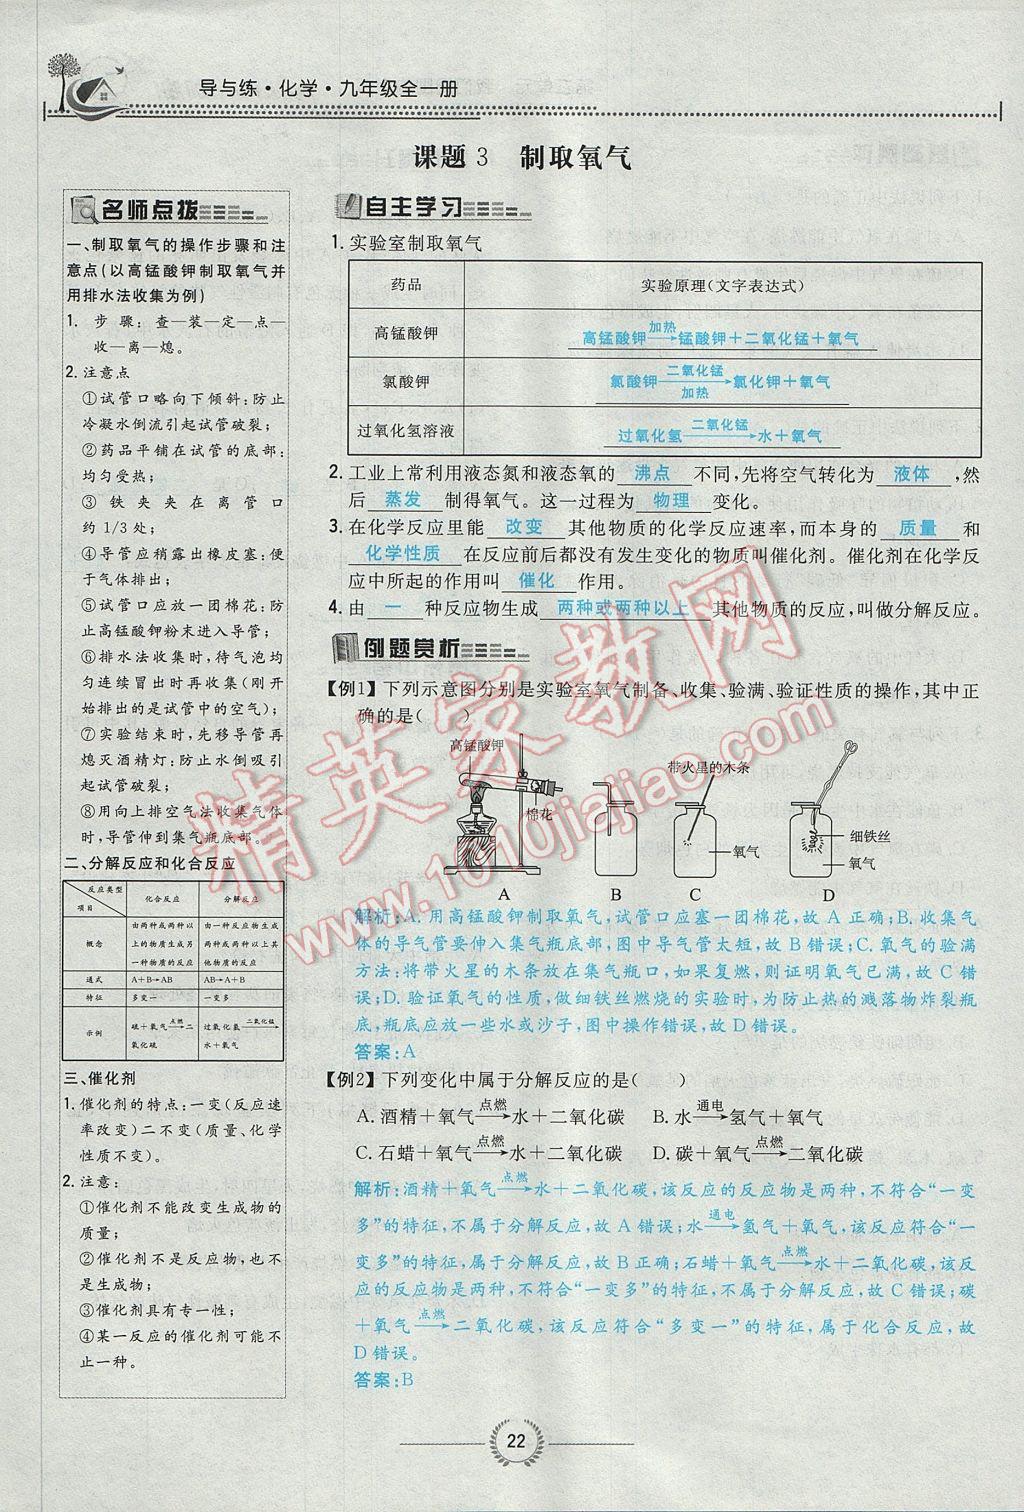 导与练·化学·九年级全一册
课题3 制取氧气
名师点拨
一、制取氧气的操作步骤和注
意点(以高锰酸钾制取氧气并
用排水法收集为例)
1. 步骤:查—装—定—点—
收—离—熄。
2. 注意点
①试管口略向下倾斜:防止
冷凝水倒流引起试管破裂;
②药品平铺在试管的底部:
均匀受热;
③铁夹夹在离管口
约1/3处;
④导管应稍露出橡皮塞:便
于气体排出;
⑤试管口应放一团棉花:防
止高锰酸钾粉末进入导管;
⑥排水法收集时,待气泡均
匀连续冒出时再收集(刚开
始排出的是试管中的空气);
⑦实验结束时,先移导管再
熄灭酒精灯:防止水倒吸引
起试管破裂;
⑧用向上排空气法收集气体
时,导管伸到集气瓶底部。
二、分解反应和化合反应
反应类型
项目
化合反应
分解反应
概念
由两种或两种以
上的物质生成另
一种物质的反应
由一种反应物生成
两种或两种以上其
他物质的反应
通式 A+B→AB AB→A+B
特征 多变一 一变多
示例
硫+氧气 点燃→ 二
氧化硫
过氧化氢 二氧化锰→
水+氧气
三、催化剂
1. 催化剂的特点:一变(反应速
率改变)二不变(质量、化学
性质不变)。
2. 注意:
①催化剂不能改变生成物的
质量;
②催化剂不是反应物,也不
是生成物;
③催化剂具有专一性;
④某一反应的催化剂可能不
止一种。
自主学习
1. 实验室制取氧气
药品 实验原理(文字表达式)
高锰酸钾 高锰酸钾 加热→ 锰酸钾+二氧化锰+氧气
氯酸钾 氯酸钾 二氧化锰 加热→ 氯化钾+氧气
过氧化氢溶液 过氧化氢 二氧化锰→ 水+氧气
2. 工业上常利用液态氮和液态氧的 沸点 不同,先将空气转化为 液体 ,然
后 蒸发 制得氧气。这一过程为 物理 变化。
3. 在化学反应里能 改变 其他物质的化学反应速率,而本身的 质量 和
化学性质 在反应前后都没有发生变化的物质叫催化剂。催化剂在化学反
应中所起的作用叫 催化 作用。
4. 由 一 种反应物生成 两种或两种以上 其他物质的反应,叫做分解反应。
例题赏析
【例1】下列示意图分别是实验室氧气制备、收集、验满、验证性质的操作,其中正
确的是( )
高锰酸钾
棉花
带火星的木条
氧气
细铁丝
氧气
A B C D
解析:A. 用高锰酸钾制取氧气,试管口应塞一团棉花,故A正确;B. 收集气
体的导气管要伸入集气瓶底部,图中导气管太短,故B错误;C. 氧气的验满
方法:将带火星的木条放在集气瓶口,如果复燃,则证明氧气已满,故C错
误;D. 验证氧气的性质,做细铁丝燃烧的实验时,为防止热的溅落物炸裂瓶
底,瓶底应放一些水或沙子,图中操作错误,故D错误。
答案:A
【例2】下列变化中属于分解反应的是( )
A. 酒精+氧气 点燃→ 水+二氧化碳 B. 水 通电→ 氢气+氧气
C. 石蜡+氧气 点燃→ 水+二氧化碳 D. 碳+氧气 点燃→ 二氧化碳
解析:酒精+氧气 点燃→ 水+二氧化碳,该反应的反应物是两种,不符合“一变
多”的特征,不属于分解反应,故A错误;水 通电→ 氢气+氧气,该反应符合“一
变多”的特征,属于分解反应,故B正确;石蜡+氧气 点燃→ 水+二氧化碳,该反
应的反应物是两种,不符合“一变多”的特征,不属于分解反应,故C错误;碳
+氧气 点燃→ 二氧化碳,该反应符合“多变一”的特征,属于化合反应,故D
错误。
答案:B
22
精英家教网
www.1010jiajiao.com